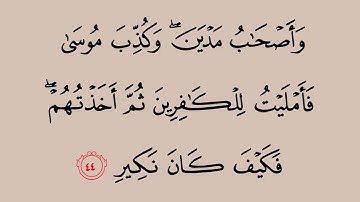 وَأَصۡحَٰبُ مَدۡيَنَۖ وَكُذِّبَ مُوسَىٰ
فَأَمۡلَيۡتُ لِلۡكَٰفِرِينَ ثُمَّ أَخَذۡتُهُمۡۖ
فَكَيۡفَ كَانَ نَكِيرِ ٤٤